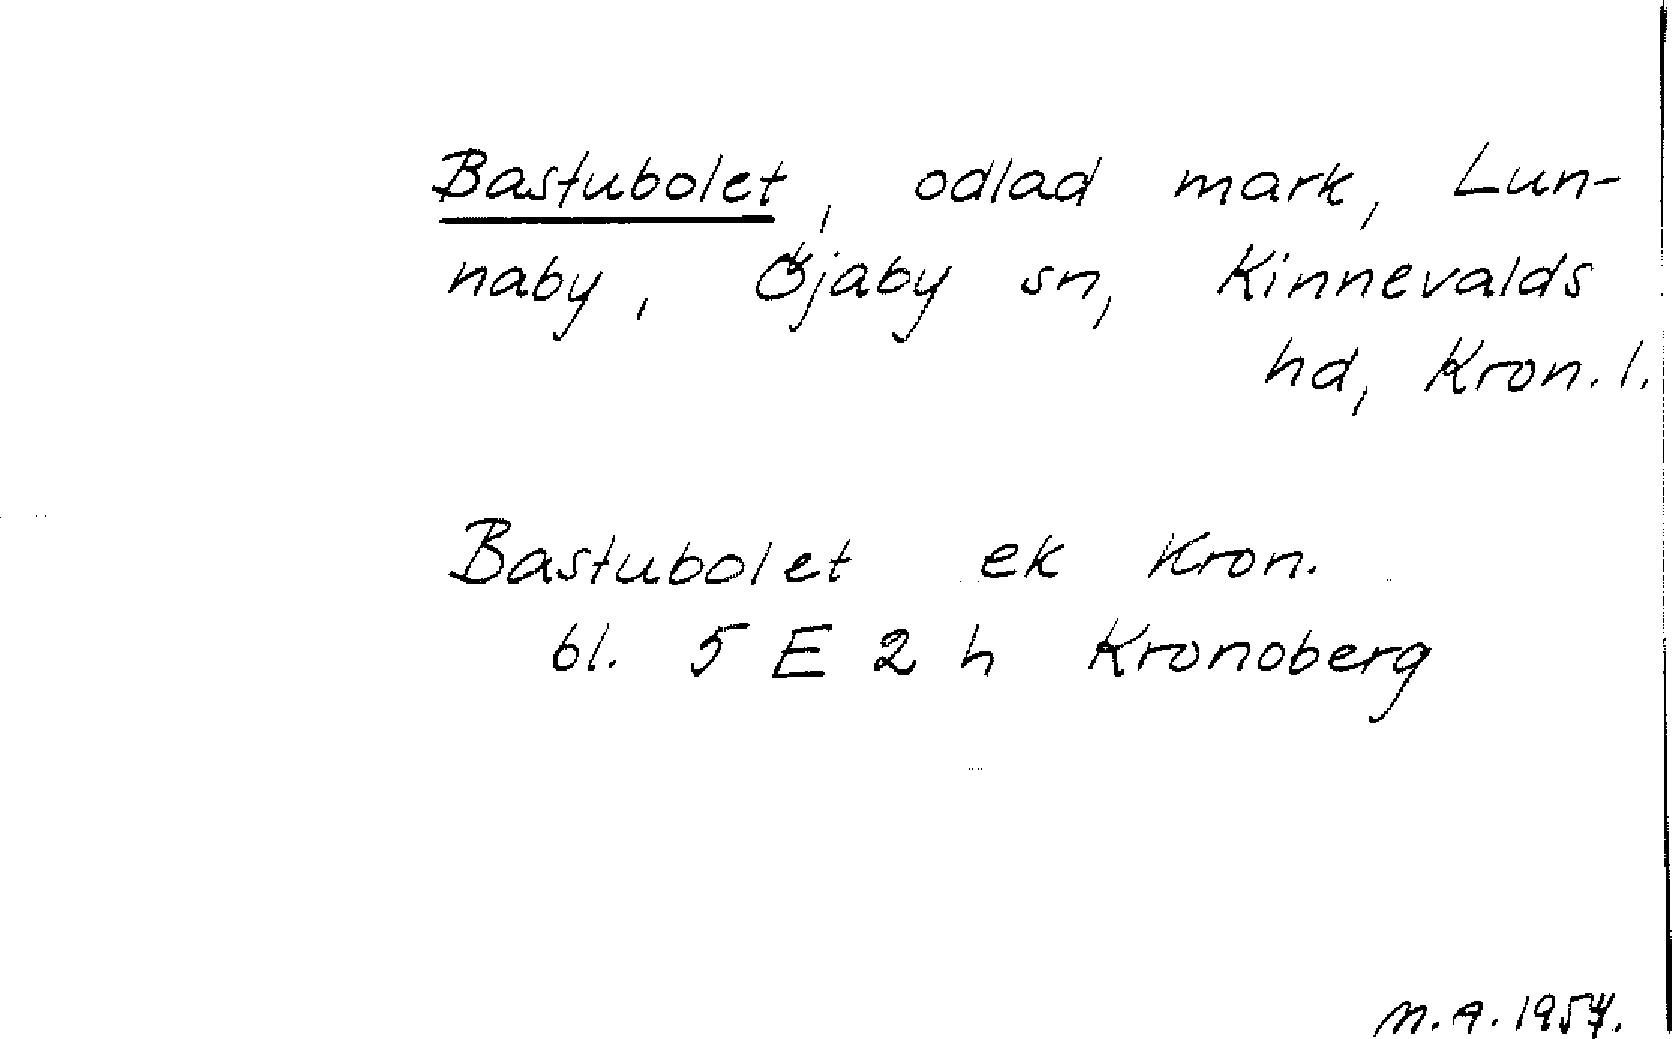 Bastubolet, odlad mark, Lun-
naby, Öjaby sn, Kinnevalds
hd, Kron. l.
Bastubolet ek Kron.
bl. 5 E 2 h Kronoberg
M.A. 1957.